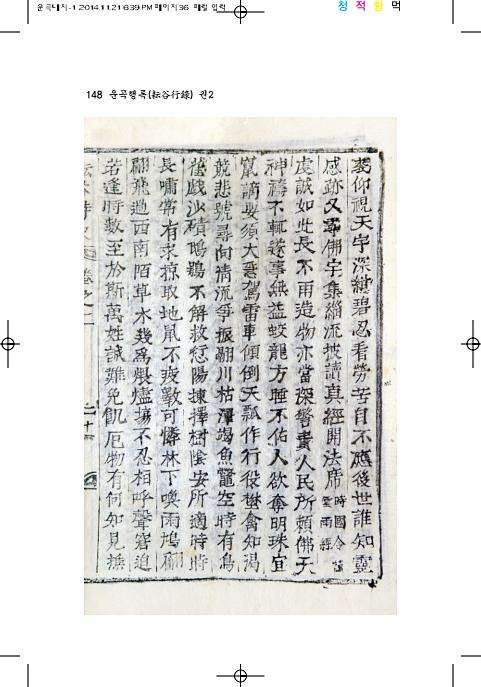 운곡대치-1 2014.11.21 6:39 PM 페이지36
청 적 황 먹
148 운곡행록(耘谷行錄) 권2
仰視天宇深紺碧忍看勞苦自不應後世誰知靈
感跡又霸佛宇集緇流披讀眞經開法席 時國令 雲雨經
虔誠如此長不雨造物亦當深警責人民所賴佛天
神禱不輒遂事無益蛟龍方睡不佑人欲奪明珠宜
竄謫要須大叢駕雷車傾倒天瓢作行役林禽知渴
競悲號尋向淸流爭振翮川枯澤竭魚鼈空時有鳥
舊戲沙磧鳴鷄不解救愆陽揀擇樹陰安所適時時
長嘯常有求掠取地鼠不疲歝可憐林下喚雨鳩翩
翩飛過西南陌草木幾爲煨燼墟不忍相呼聲窘迫
若逢時數至於斯萬姓誠難免飢厄物有何知見
卷之二
二十